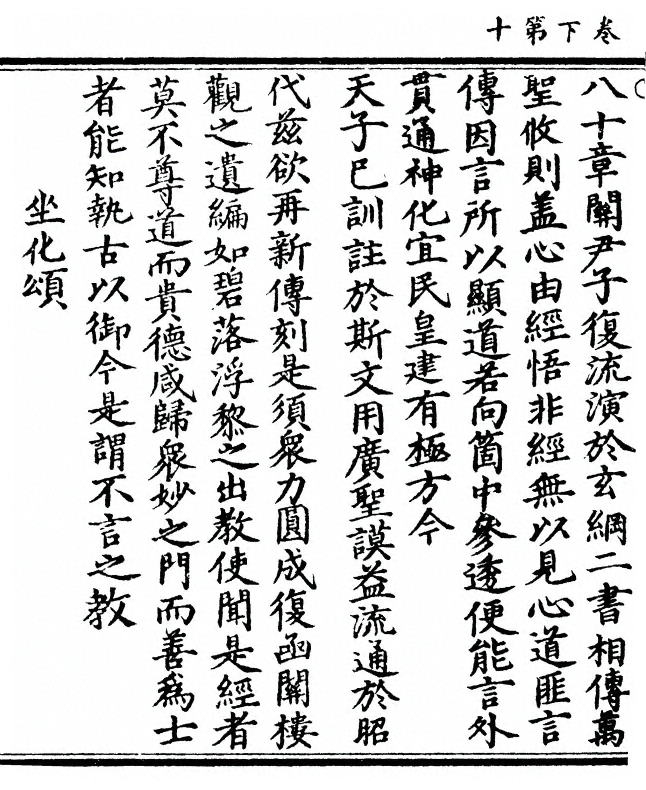 卷下第十
八十章關尹子復流演於玄綱二書相傳萬
聖攸則盖心由經悟非經無以見心道匪言
傳因言所以顯道若向箇中參透便能言外
貫通神化宜民皇建有極方今
天子巳訓註於斯文用廣聖謨益流通於昭
代兹欲再新傳刻是須衆力圓成復函關樓
觀之遺編如碧落浮黎之出教使聞是經者
莫不尊道而貴德咸歸衆妙之門而善爲士
者能知執古以御今是謂不言之教
坐化頌